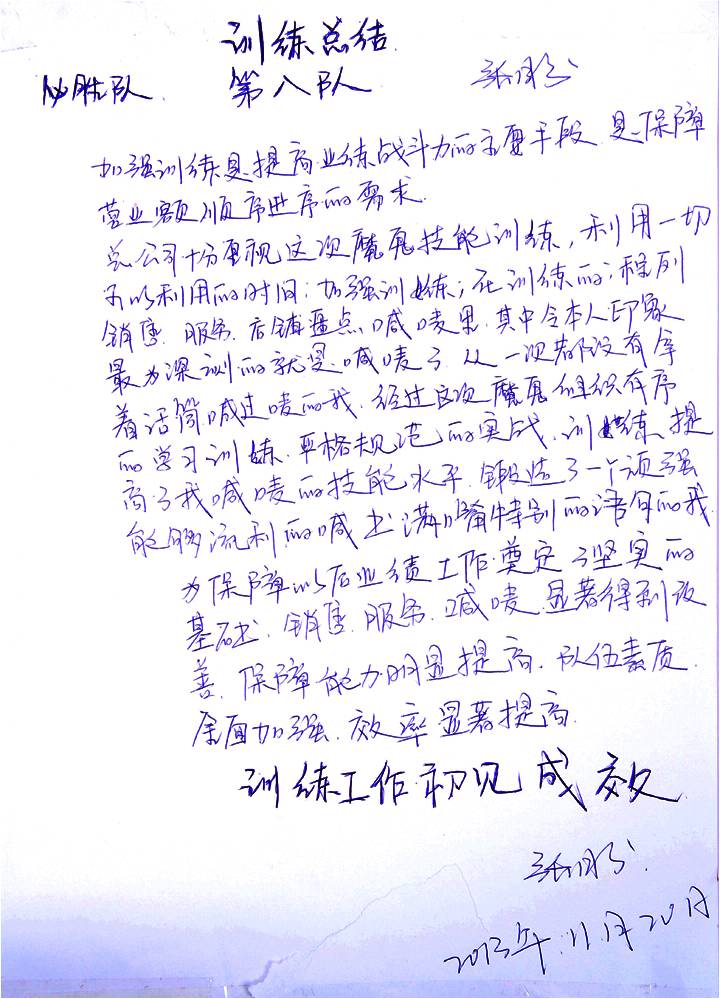 训练总结
必胜队 第八队
加强训练是提高业练战斗力的主要手段 是保障
营业额顺序进序的需求.
总公司十分重视这次魔鬼技能训练, 利用一切
可以利用的时间: 加强训练; 在训练的:程列
销售. 服务. 店铺盘点. 喊唛果. 其中令本人印象
最为深测的就是喊唛了 从一次都没有拿
着话筒喊过唛的我. 经过这次魔鬼组织有序
的学习训练. 严格规范的实战. 训练. 提
高了我喊唛的技能水平. 锻造了一个顽强
能够流利的喊出满嘴特别的语句的我
为保障以后业绩工作奠定了坚实的
基础. 销售. 服务. 喊唛. 显著得到改
善. 保障能力明显提高. 队伍素质
全面加强. 效率显著提高.
训练工作初见成效
2013年.11月20日